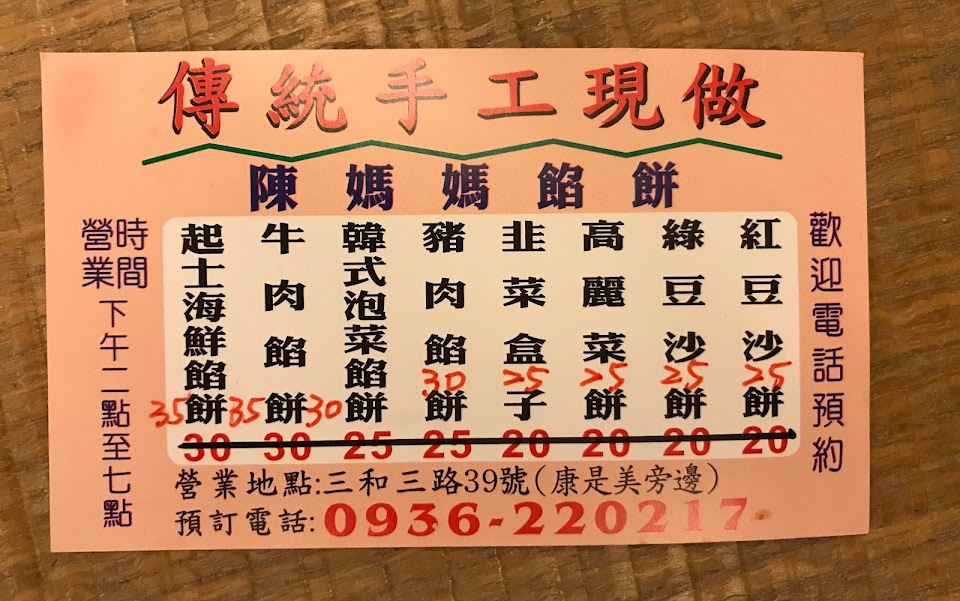 傳統手工現做
陳媽媽餡餅
歡迎電話預約
紅豆沙餅 25 20
綠豆沙餅 25 20
高麗菜餅 25 20
韭菜盒子 25 20
豬肉餡餅 30 25
韓式泡菜餡餅 30 25
牛肉餡餅 35 30
起士海鮮餡餅 35 30
營業時間
下午二點至七點
營業地點:三和三路39號(康是美旁邊)
預訂電話:0936-220217